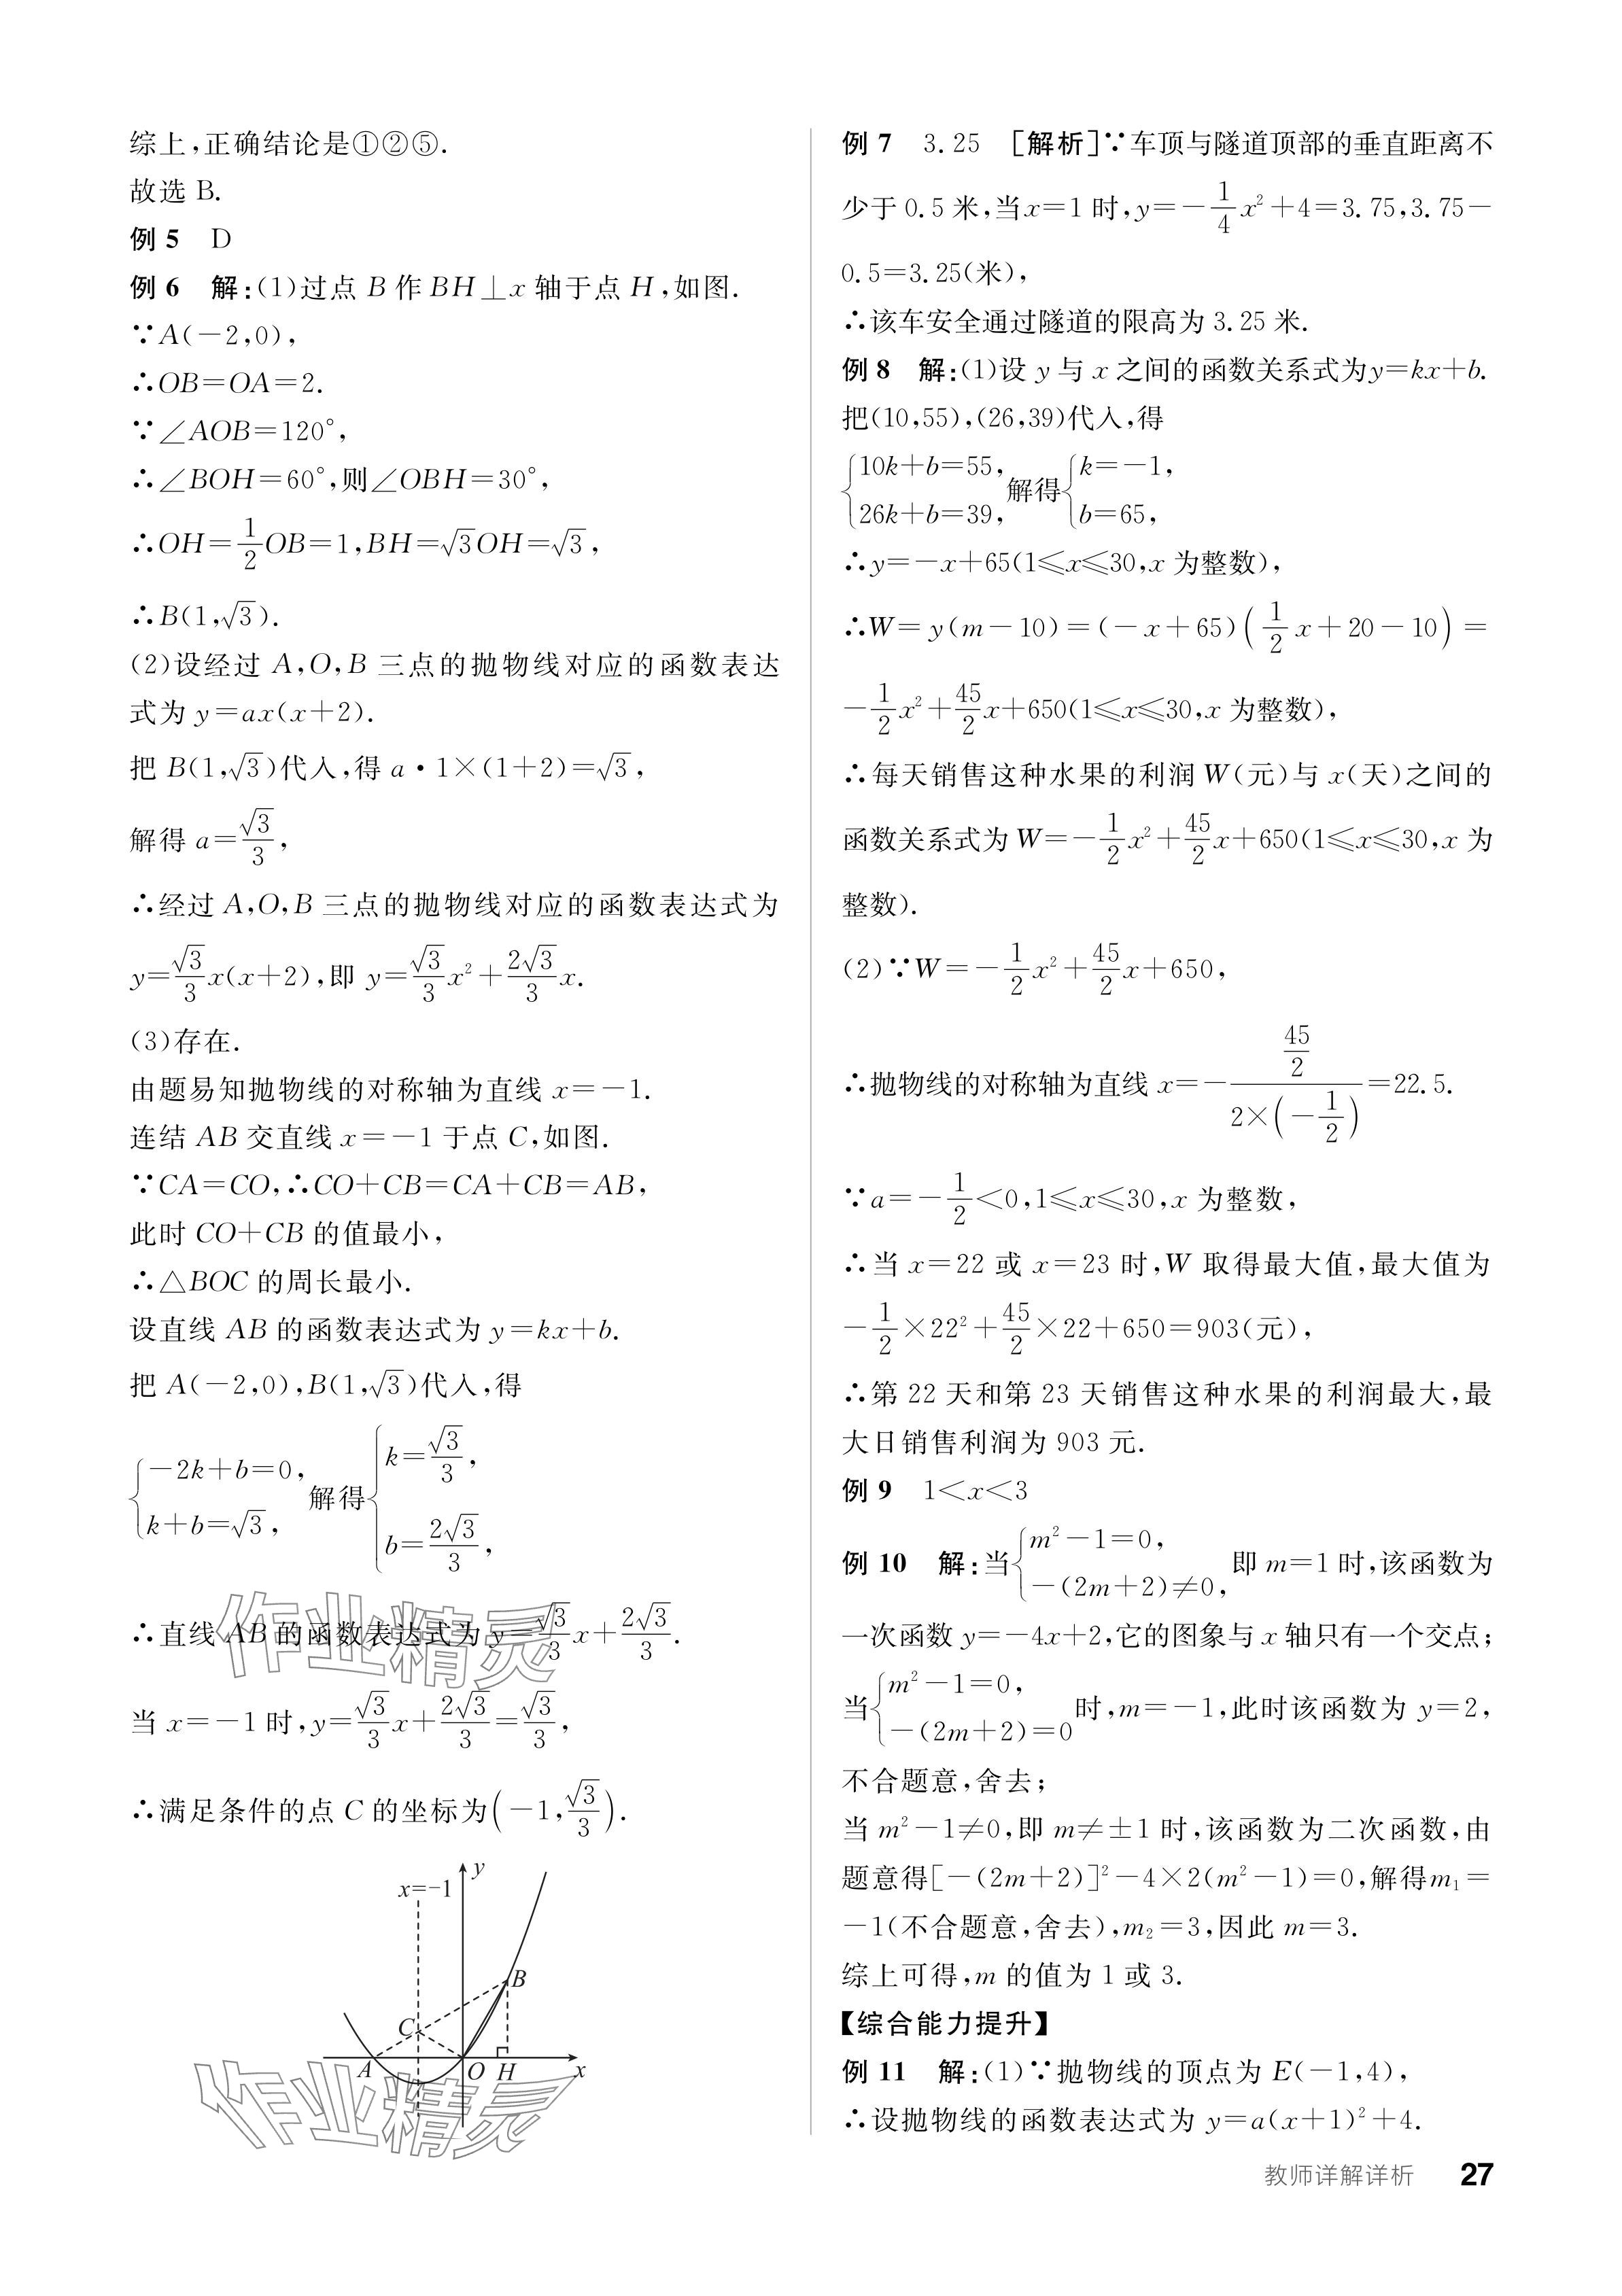 综上,正确结论是①②⑤.
故选 B.
例 5 D
例 6 解:(1)过点 B 作 BH⊥x 轴于点 H,如图.
∵A(-2,0),
∴OB=OA=2.
∵∠AOB=120°,
∴∠BOH=60°,则∠OBH=30°,
∴OH=1/2OB=1,BH=√3OH=√3,
∴B(1,√3).
(2)设经过 A,O,B 三点的抛物线对应的函数表达
式为 y=ax(x+2).
把 B(1,√3)代入,得 a·1×(1+2)=√3,
解得 a=√3/3,
∴经过 A,O,B 三点的抛物线对应的函数表达式为
y=√3/3x(x+2),即 y=√3/3x²+2√3/3x.
(3)存在.
由题易知抛物线的对称轴为直线 x=-1.
连结 AB 交直线 x=-1 于点 C,如图.
∵CA=CO,∴CO+CB=CA+CB=AB,
此时 CO+CB 的值最小,
∴△BOC 的周长最小.
设直线 AB 的函数表达式为 y=kx+b.
把 A(-2,0),B(1,√3)代入,得
{-2k+b=0, k+b=√3, 解得{k=√3/3, b=2√3/3,
∴直线 AB 的函数表达式为 y=√3/3x+2√3/3.
当 x=-1 时,y=√3/3x+2√3/3=√3/3,
∴满足条件的点 C 的坐标为(-1,√3/3).
x=-1
y
B
C
A
O
H
x
作业精灵
作业精灵
例 7 3.25 [解析]∵车顶与隧道顶部的垂直距离不
少于 0.5 米,当x=1 时,y=-1/4x²+4=3.75,3.75-
0.5=3.25(米),
∴该车安全通过隧道的限高为 3.25 米.
例 8 解:(1)设 y 与 x 之间的函数关系式为y=kx+b.
把(10,55),(26,39)代入,得
{10k+b=55, 26k+b=39, 解得{k=-1, b=65,
∴y=-x+65(1≤x≤30,x 为整数),
∴W=y(m-10)=(-x+65)(1/2x+20-10)=
-1/2x²+45/2x+650(1≤x≤30,x 为整数),
∴每天销售这种水果的利润 W(元)与 x(天)之间的
函数关系式为 W=-1/2x²+45/2x+650(1≤x≤30,x 为
整数).
(2)∵W=-1/2x²+45/2x+650,
∴抛物线的对称轴为直线 x=-(45/2)/(2×(-1/2))=22.5.
∵a=-1/2<0,1≤x≤30,x 为整数,
∴当 x=22 或 x=23 时,W 取得最大值,最大值为
-1/2×22²+45/2×22+650=903(元),
∴第 22 天和第 23 天销售这种水果的利润最大,最
大日销售利润为 903 元.
例 9 1<x<3
例 10 解:当{m²-1=0, -(2m+2)≠0, 即 m=1 时,该函数为
一次函数 y=-4x+2,它的图象与 x 轴只有一个交点;
当{m²-1=0, -(2m+2)=0 时,m=-1,此时该函数为 y=2,
不合题意,舍去;
当 m²-1≠0,即 m≠±1 时,该函数为二次函数,由
题意得[-(2m+2)]²-4×2(m²-1)=0,解得m₁=
-1(不合题意,舍去),m₂=3,因此 m=3.
综上可得,m 的值为 1 或 3.
【综合能力提升】
例 11 解:(1)∵抛物线的顶点为 E(-1,4),
∴设抛物线的函数表达式为 y=a(x+1)²+4.
教师详解详析 27